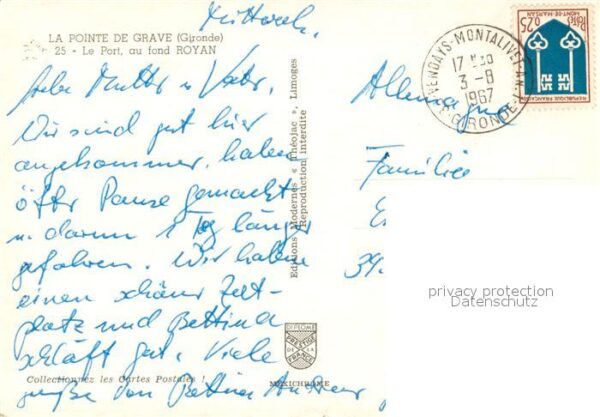 Mittwoch.
LA POINTE DE GRAVE (Gironde)
25 - Le Port, au fond ROYAN
Liebe Mutter u. Vater,
Wir sind gut hier
angekommen, haben
öfter Pause gemacht
u. darum 1 Tag länger
gefahren. Wir haben
einen schönen Zelt-
platz und Bettina
schläft gut. Viele
Grüße von Bettina Andreas
Collectionnez les Cartes Postales !
MEXICHROME
Editions Modernes « Théojac », Limoges
Reproduction interdite
DIPLOME
PRESTIGE
DE LA
FRANCE
VENDAYS-MONTALIVET
GIRONDE
17 H30
3-8
1967
0,25
MONT-DE-MARSAN
REPUBLIQUE FRANÇAISE
Postes
Allemagne
Familie
E
39.
privacy protection
Datenschutz